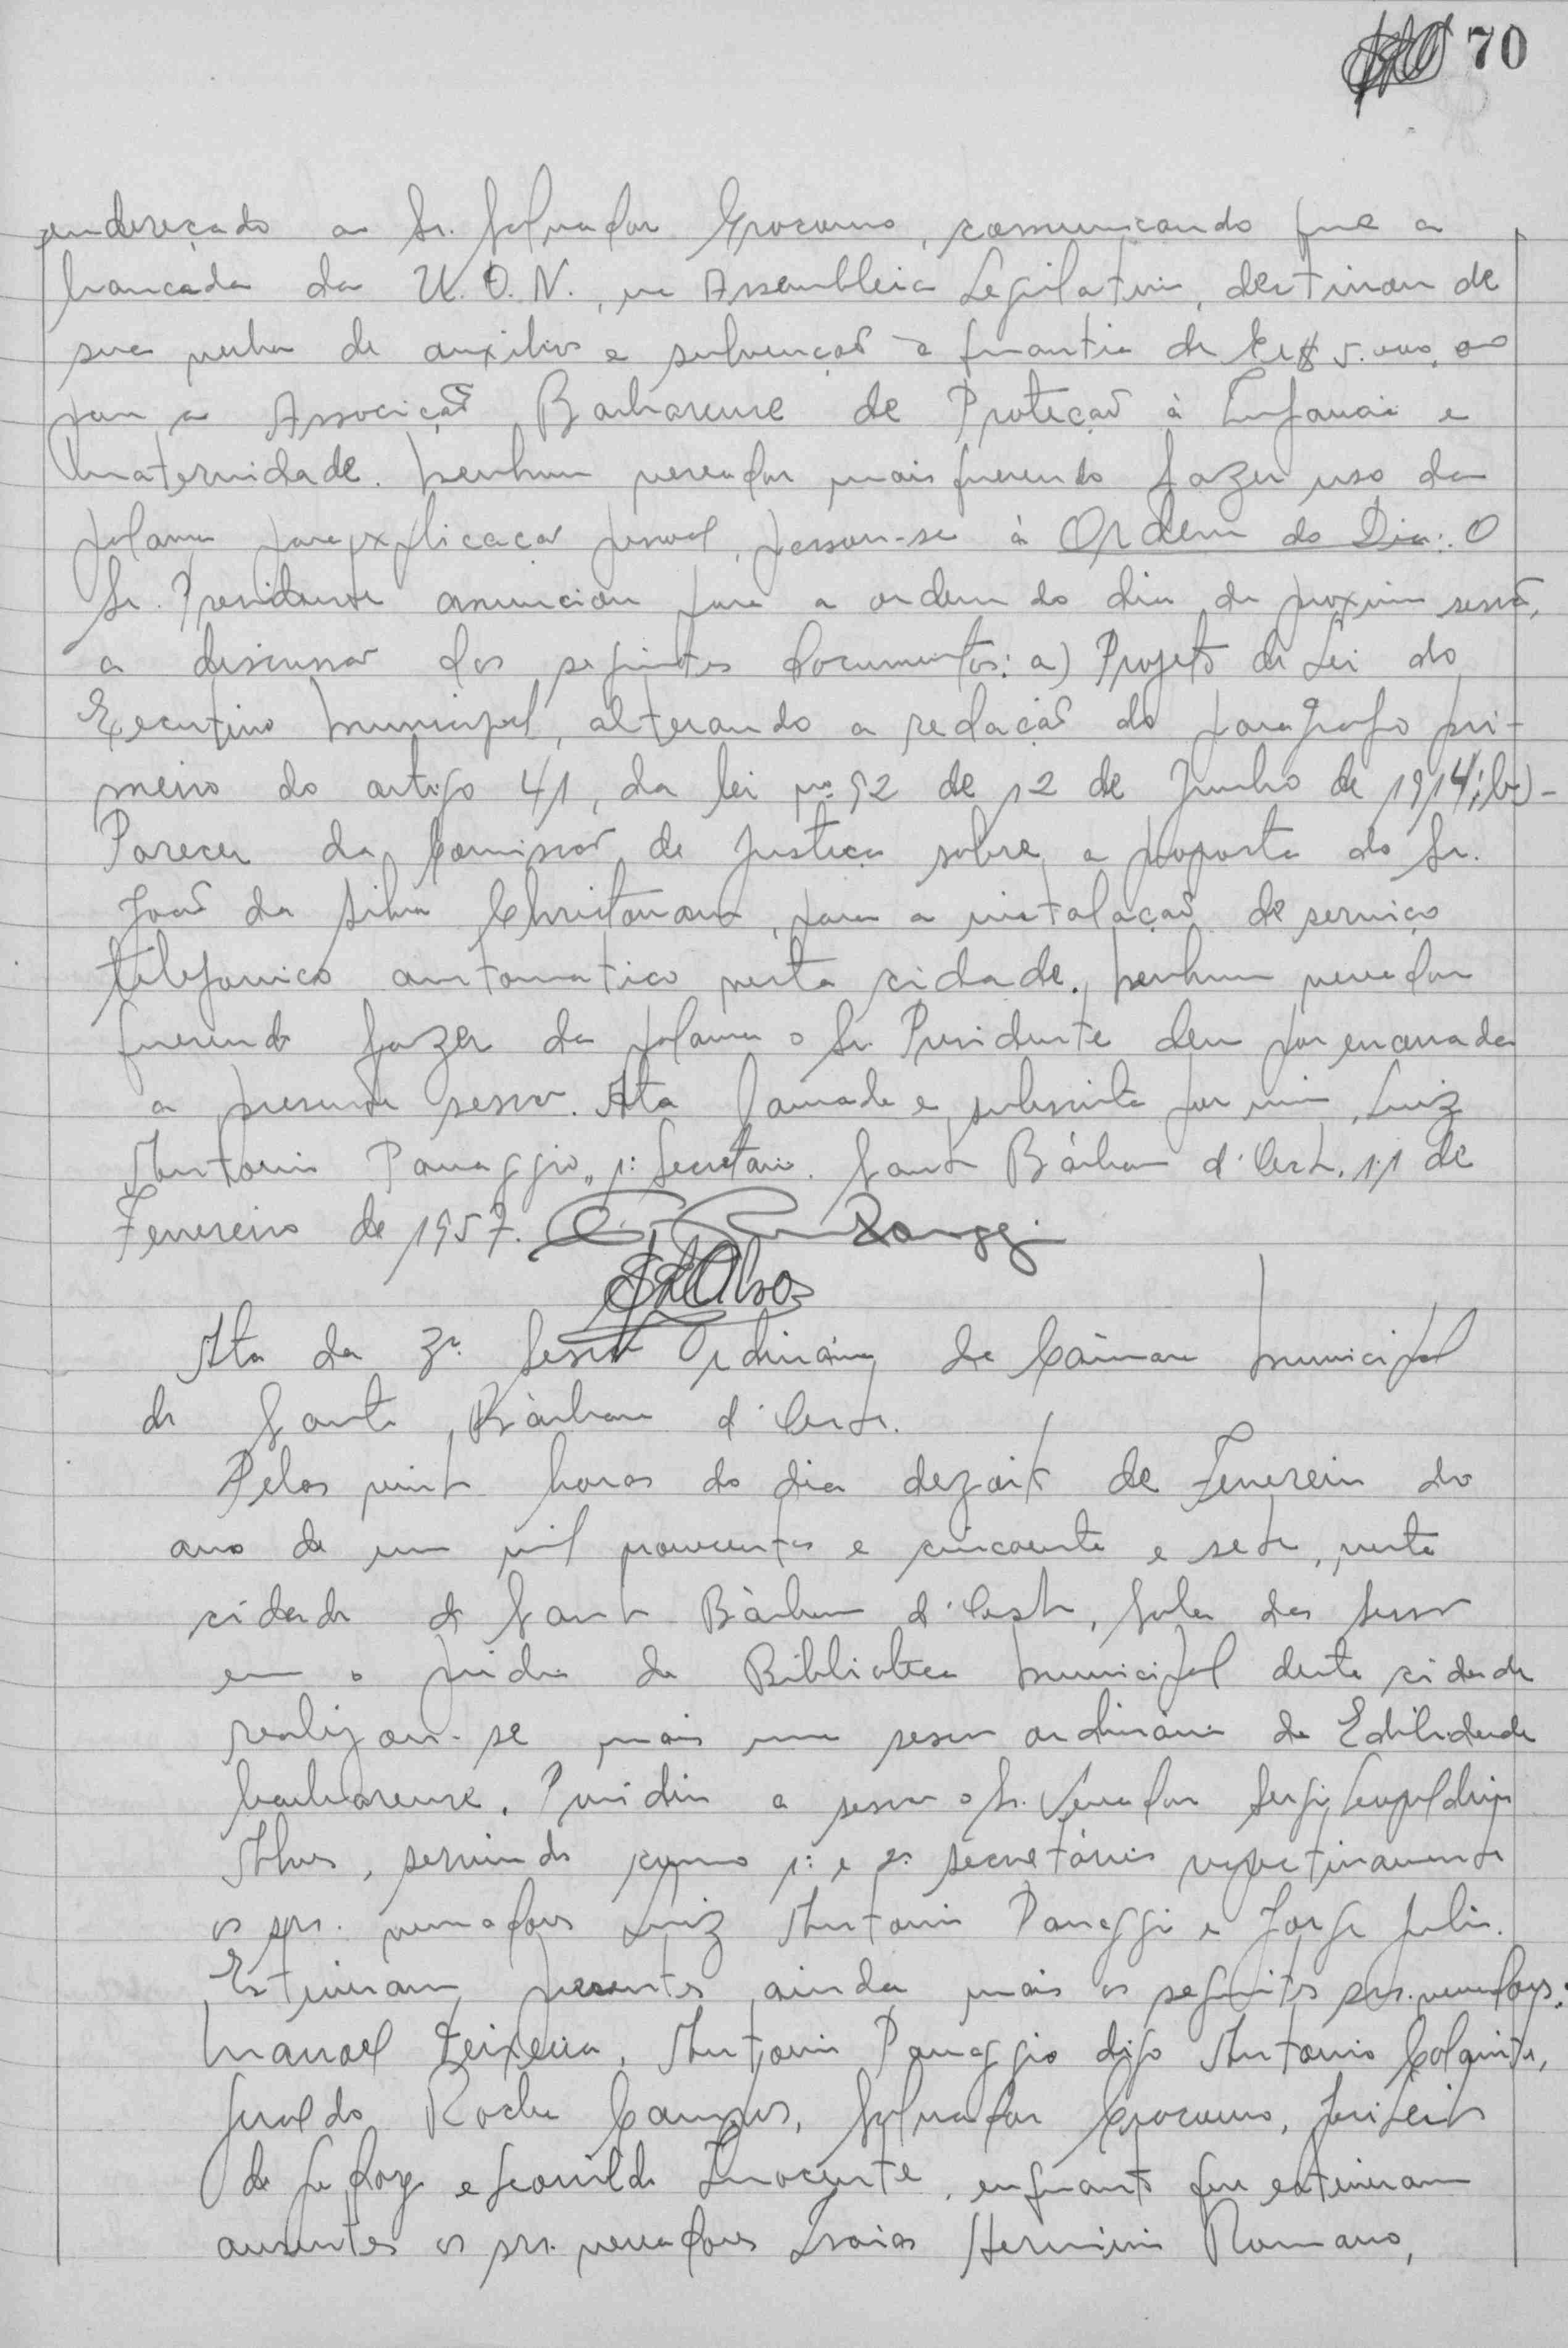 70
endereçado ao Sr. Salvador Crocomo, comunicando que a
bancada da U.D.N., na Assembleia Legilativa, destinou de
sua verba de auxilios e subvenção a quantia de Cr$ 5.000,00
para a Associção Barbarense de Proteção à Infancia e
Maternidade. Nenhum vereador mais querendo fazer uso da
palavra para explicação pessoal, passou-se à Ordem do Dia: O
Sr. Presidente anunciou para a ordem do dia da proxima sessão,
a discussão dos seguintes documentos: a) Projeto de Lei do
Executivo Municipal, alterando a redação do paragrafo pri-
meiro do artigo 41, da lei nº 92 de 12 de Junho de 1914; b)-
Parecer da Comissão de Justiça sobre a proposta do Sr.
João da Silva para a instalação de serviço
telefonico automatico nesta cidade. Nenhum vereador
querendo fazer da palavra o Sr. Presidente deu por encerrada
a presente sessão. Ata lavrada e subscrita por mim, Luiz
Antonio Panaggio, 1º Secretario. Santa Bárbara d'Oeste, 11 de
Fevereiro de 1957.
Ata da 3ª Sessão Ordinária da Câmara Municipal
de Santa Bárbara d'Oeste.
Pelas vinte horas do dia dezoito de Fevereiro do
ano de um mil novecentos e cincoenta e sete, nesta
cidade de Santa Bárbara d'Oeste, Sala das Sessões
em o prédio da Biblioteca Municipal desta cidade
realizou-se mais uma sessão ordinária da Edilidade
barbarense. Presidiu a sessão o Sr. Vereador Sergio Leopoldino
Alves, servindo como 1º e 2º secretários respectivamente
os srs. vereadores Luiz Antonio Panaggio e Jorge Julio.
Estiveram presentes ainda mais os seguintes srs. vereadores:
Manoel Teixeira, Antonio Panaggio digo Antonio
Geraldo Rocha Campos, Salvador Crocomo,
de Godoy e Leonildo Inocente, enquanto que estiveram
ausentes os srs. vereadores Isaias Herminio Romano,